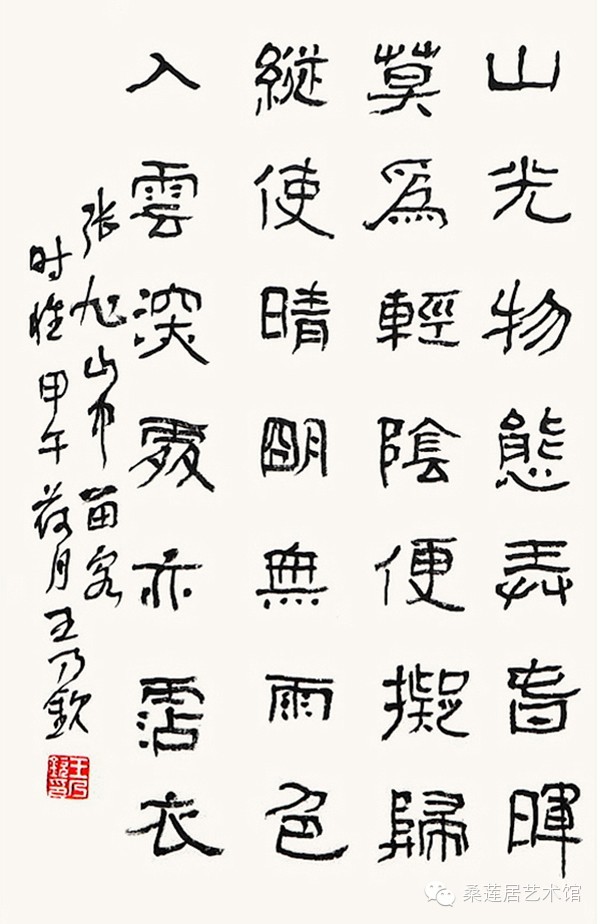 山光物態弄春暉
莫爲輕陰便擬歸
縱使晴明無雨色
入雲深處亦霑衣
张旭山中留客
时维甲午荷月王乃欽
王乃欽印
桑莲居艺术馆